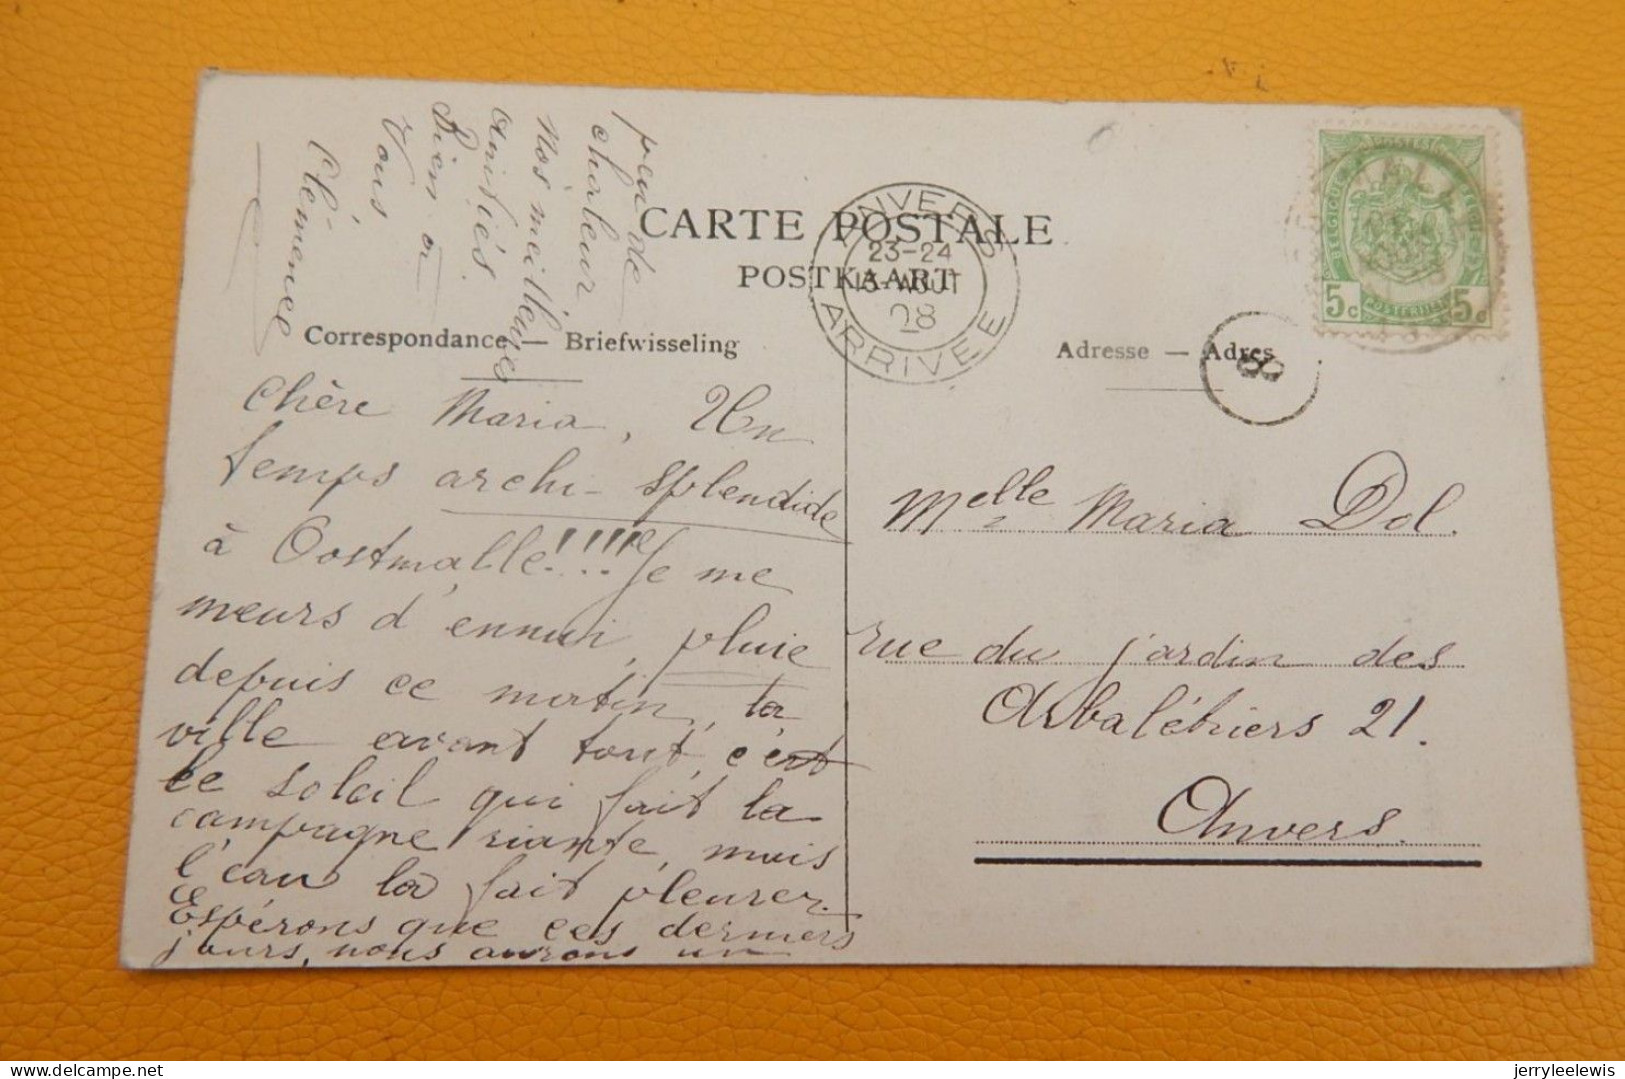 CARTE POSTALE
POSTKAART
Correspondance — Briefwisseling
Adresse — Adres
ANVERS
23-24
13 AOUT
08
ARRIVÉE
8
BELGIQUE
POSTES
5c
POSTERIJEN
5c
Chère Maria, Un
temps archi-splendide
à Oostmalle!!!! Je me
meurs d'ennui, pluie
depuis ce matin, la
ville avant tout, c'est
le soleil qui fait la
campagne riante, mais
l'eau la fait pleurer.
Espérons que ces derniers
jours, nous aurons un
peu de
chaleur
Nos meilleures
amitiés
Bien à
Vous
Clémence
Melle Maria Dol.
rue du jardin des
Arbalétriers 21.
Anvers.
jerryleelewis